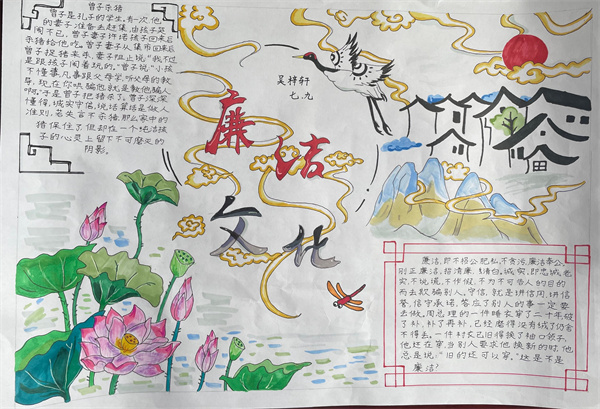 曾子杀猪
曾子是孔子的学生,有一次,他
的妻子准备去赶集,由于孩子哭
闹不已,曾子妻许诺孩子回来后
杀猪给他吃。曾子妻子从集市回来后
曾子捉猪来杀,妻子阻止说:“我不过
是跟孩子闹着玩的。”曾子说:“小孩
不懂事,凡事跟父母学,听父母的教
导,现在你哄骗他,就是教他骗人
啊。”于是曾子把猪杀了。曾子深深
懂得,诚实守信,说话算话是做人
准则,若失言不杀猪,那么家中的
猪保住了但却在一个纯洁孩
子的心灵上留下不可磨灭的
阴影。
吴梓轩
七.九
廉洁
文化
廉洁,即不损公肥私,不贪污,廉洁奉公,
刚正廉洁,指清廉,清白。诚实,即忠诚老
实,不说谎,不作假,不为不可告人的目的
而去欺骗别人。守信,就是讲信用,讲信
誉,信守承诺,答应了别人的事一定要
去做。周总理的一件睡衣穿了二十年,破
了补,补了再补,已经磨得没有绒了仍舍
不得丢。一件衬衣已旧得换了袖口领子,
他还在穿,当别人要求他换新的时,他
总是说:“旧的还可以穿。”这是不是
廉洁?